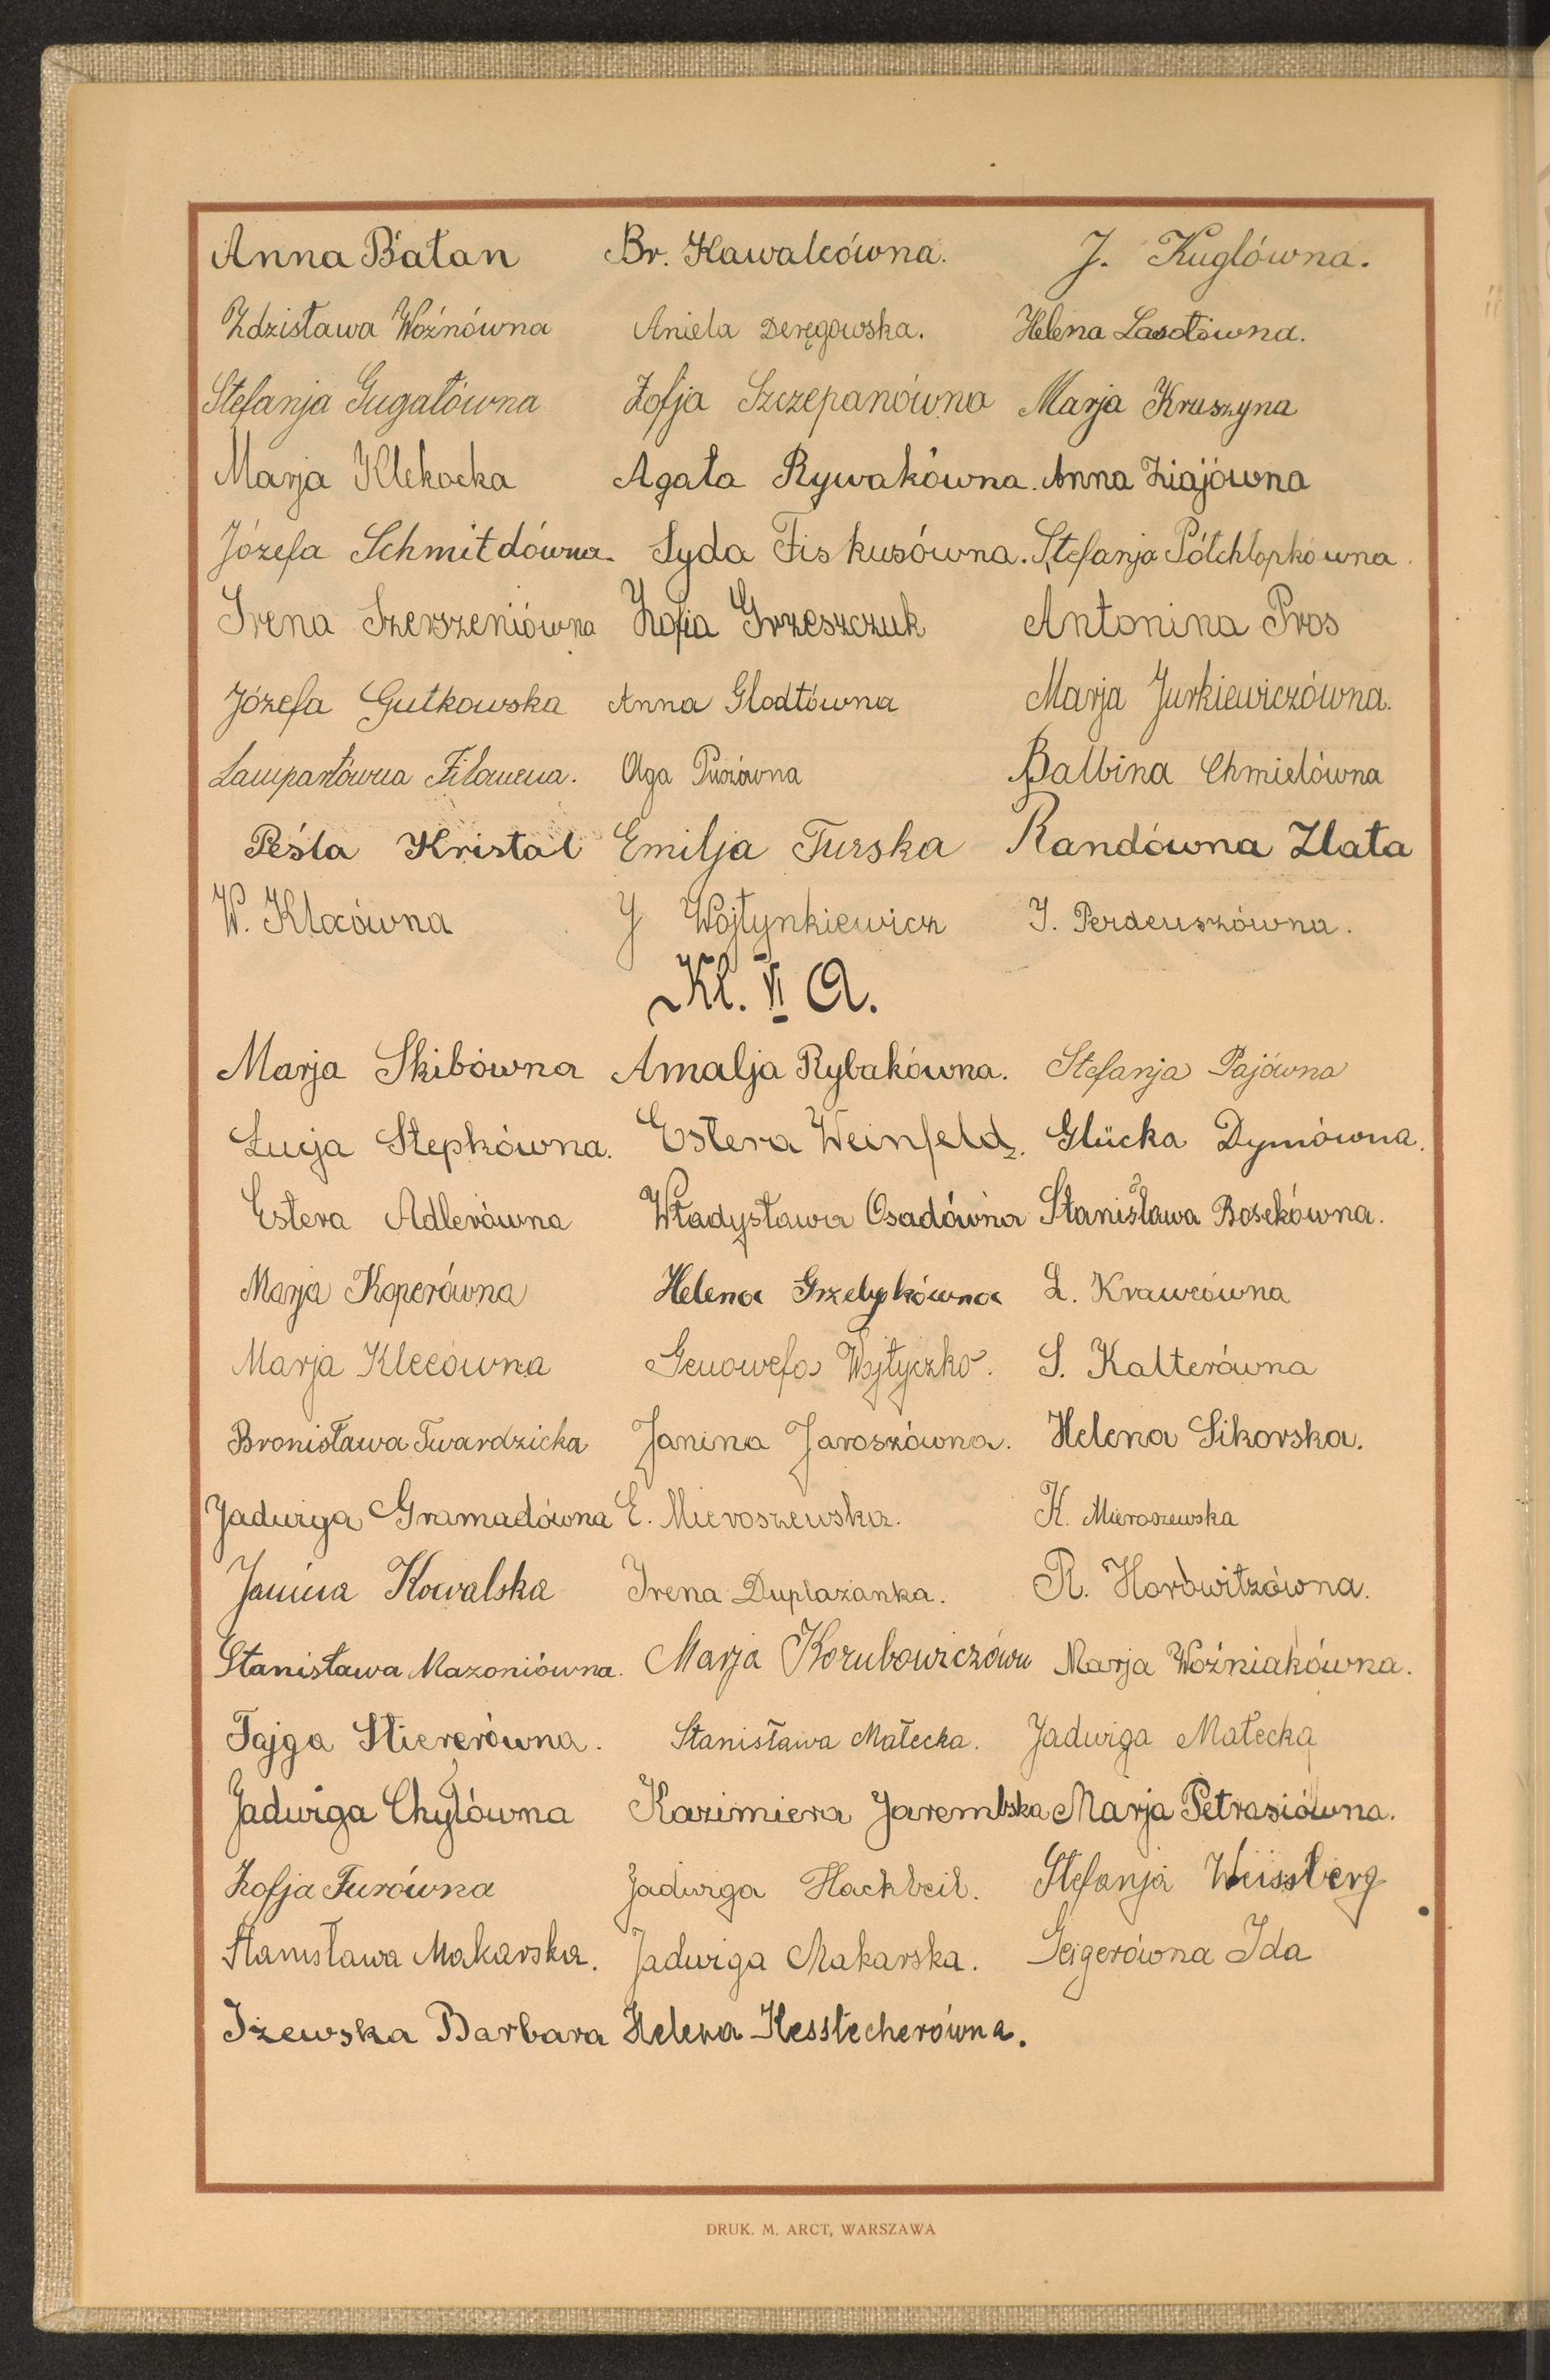 Anna Bałan Br. Kawalcówna. J. Kuglówna.
Zdzisława Woźnówna Aniela Deręgowska. Helena Lasotówna.
Stefanja Gugałówna Zofja Szczepanówna Marja Kruszyna
Marja Klekocka Agata Rywakówna. Anna Ziajówna
Józefa Schmitdówna. Lyda Fiskusówna. Stefanja Półchłopkówna.
Irena Szerszeniówna Zofia Grzeszczuk Antonina Pros
Józefa Gutkowska Anna Glodtówna Marja Jurkiewiczówna.
Lampartówna Filomena. Olga Balbina Chmielówna
Peśla Kristal Emilja Turska Randówna Zlata
W. Klocówna J Wojtynkiewicz J. Perdeuszówna.
Kl. VI A.
Marja Skibówna Amalja Rybakówna. Stefanja Pajówna
Łucja Stepkówna. Estera Weinfeld. Glücka Dymówna.
Estera Adlerówna Władysława Osadówna Stanisława Bosekówna.
Marja Koperówna Helena Grzelypkówna L. Krawcówna
Marja Klecówna Genowefa Wojtyczko. S. Kalterówna
Bronisława Twardzicka Janina Jaroszówna. Helena Sikorska.
Jadwiga Gramadówna E. Mieroszewska. K. Mieroszewska
Janina Kowalska Irena Duplażanka. R. Horowitzówna.
Stanisława Mazoniówna. Marja Kozubowiczówn Marja Woźniakówna.
Fajga Stiererówna. Stanisława Małecka. Jadwiga Małecka
Jadwiga Chylówna Kazimiera Jarembska Marja Petrasiówna.
Zofja Turówna Jadwiga Hackbeil. Stefanja Weissberg
Stanisława Makarska. Jadwiga Makarska. Geigerówna Ida
Iżewska Barbara Helena Kesslecherówna.
DRUK. M. ARCT, WARSZAWA